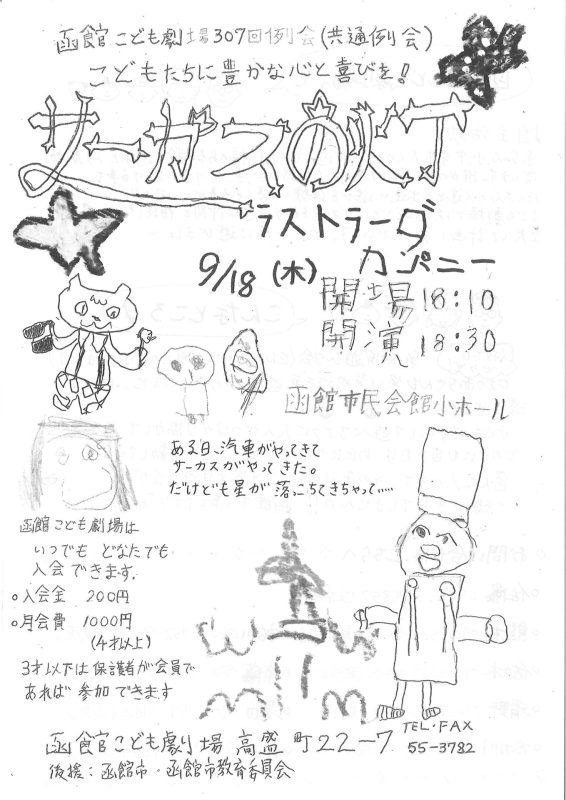 函館こども劇場307回例会(共通例会)
こどもたちに豊かな心と喜びを!
サーカスの灯
ラストラーダ
カンパニー
9/18(木)
開場18:10
開演18:30
函館市民会館小ホール
ある日、汽車がやってきて
サーカスがやってきた。
だけども星が落っこちてきちゃって……
函館こども劇場は
いつでも どなたでも
入会できます.
○入会金 200円
○月会費 1000円
(4才以上)
3才以下は保護者が会員で
あれば参加できます
函館こども劇場 高盛町22-7
TEL・FAX
55-3782
後援:函館市・函館市教育委員会